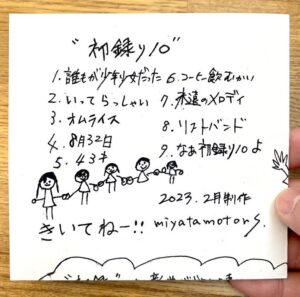 "初録り10"
1. 誰もが少年少女だった
2. いってらっしゃい
3. オムライス
4. 8月32日
5. 43才
6. コーヒー飲むかい
7. 永遠のメロディ
8. リストバンド
9. なあ初録り10よ
2023. 2月制作
きいてねー!! miyatamotors.